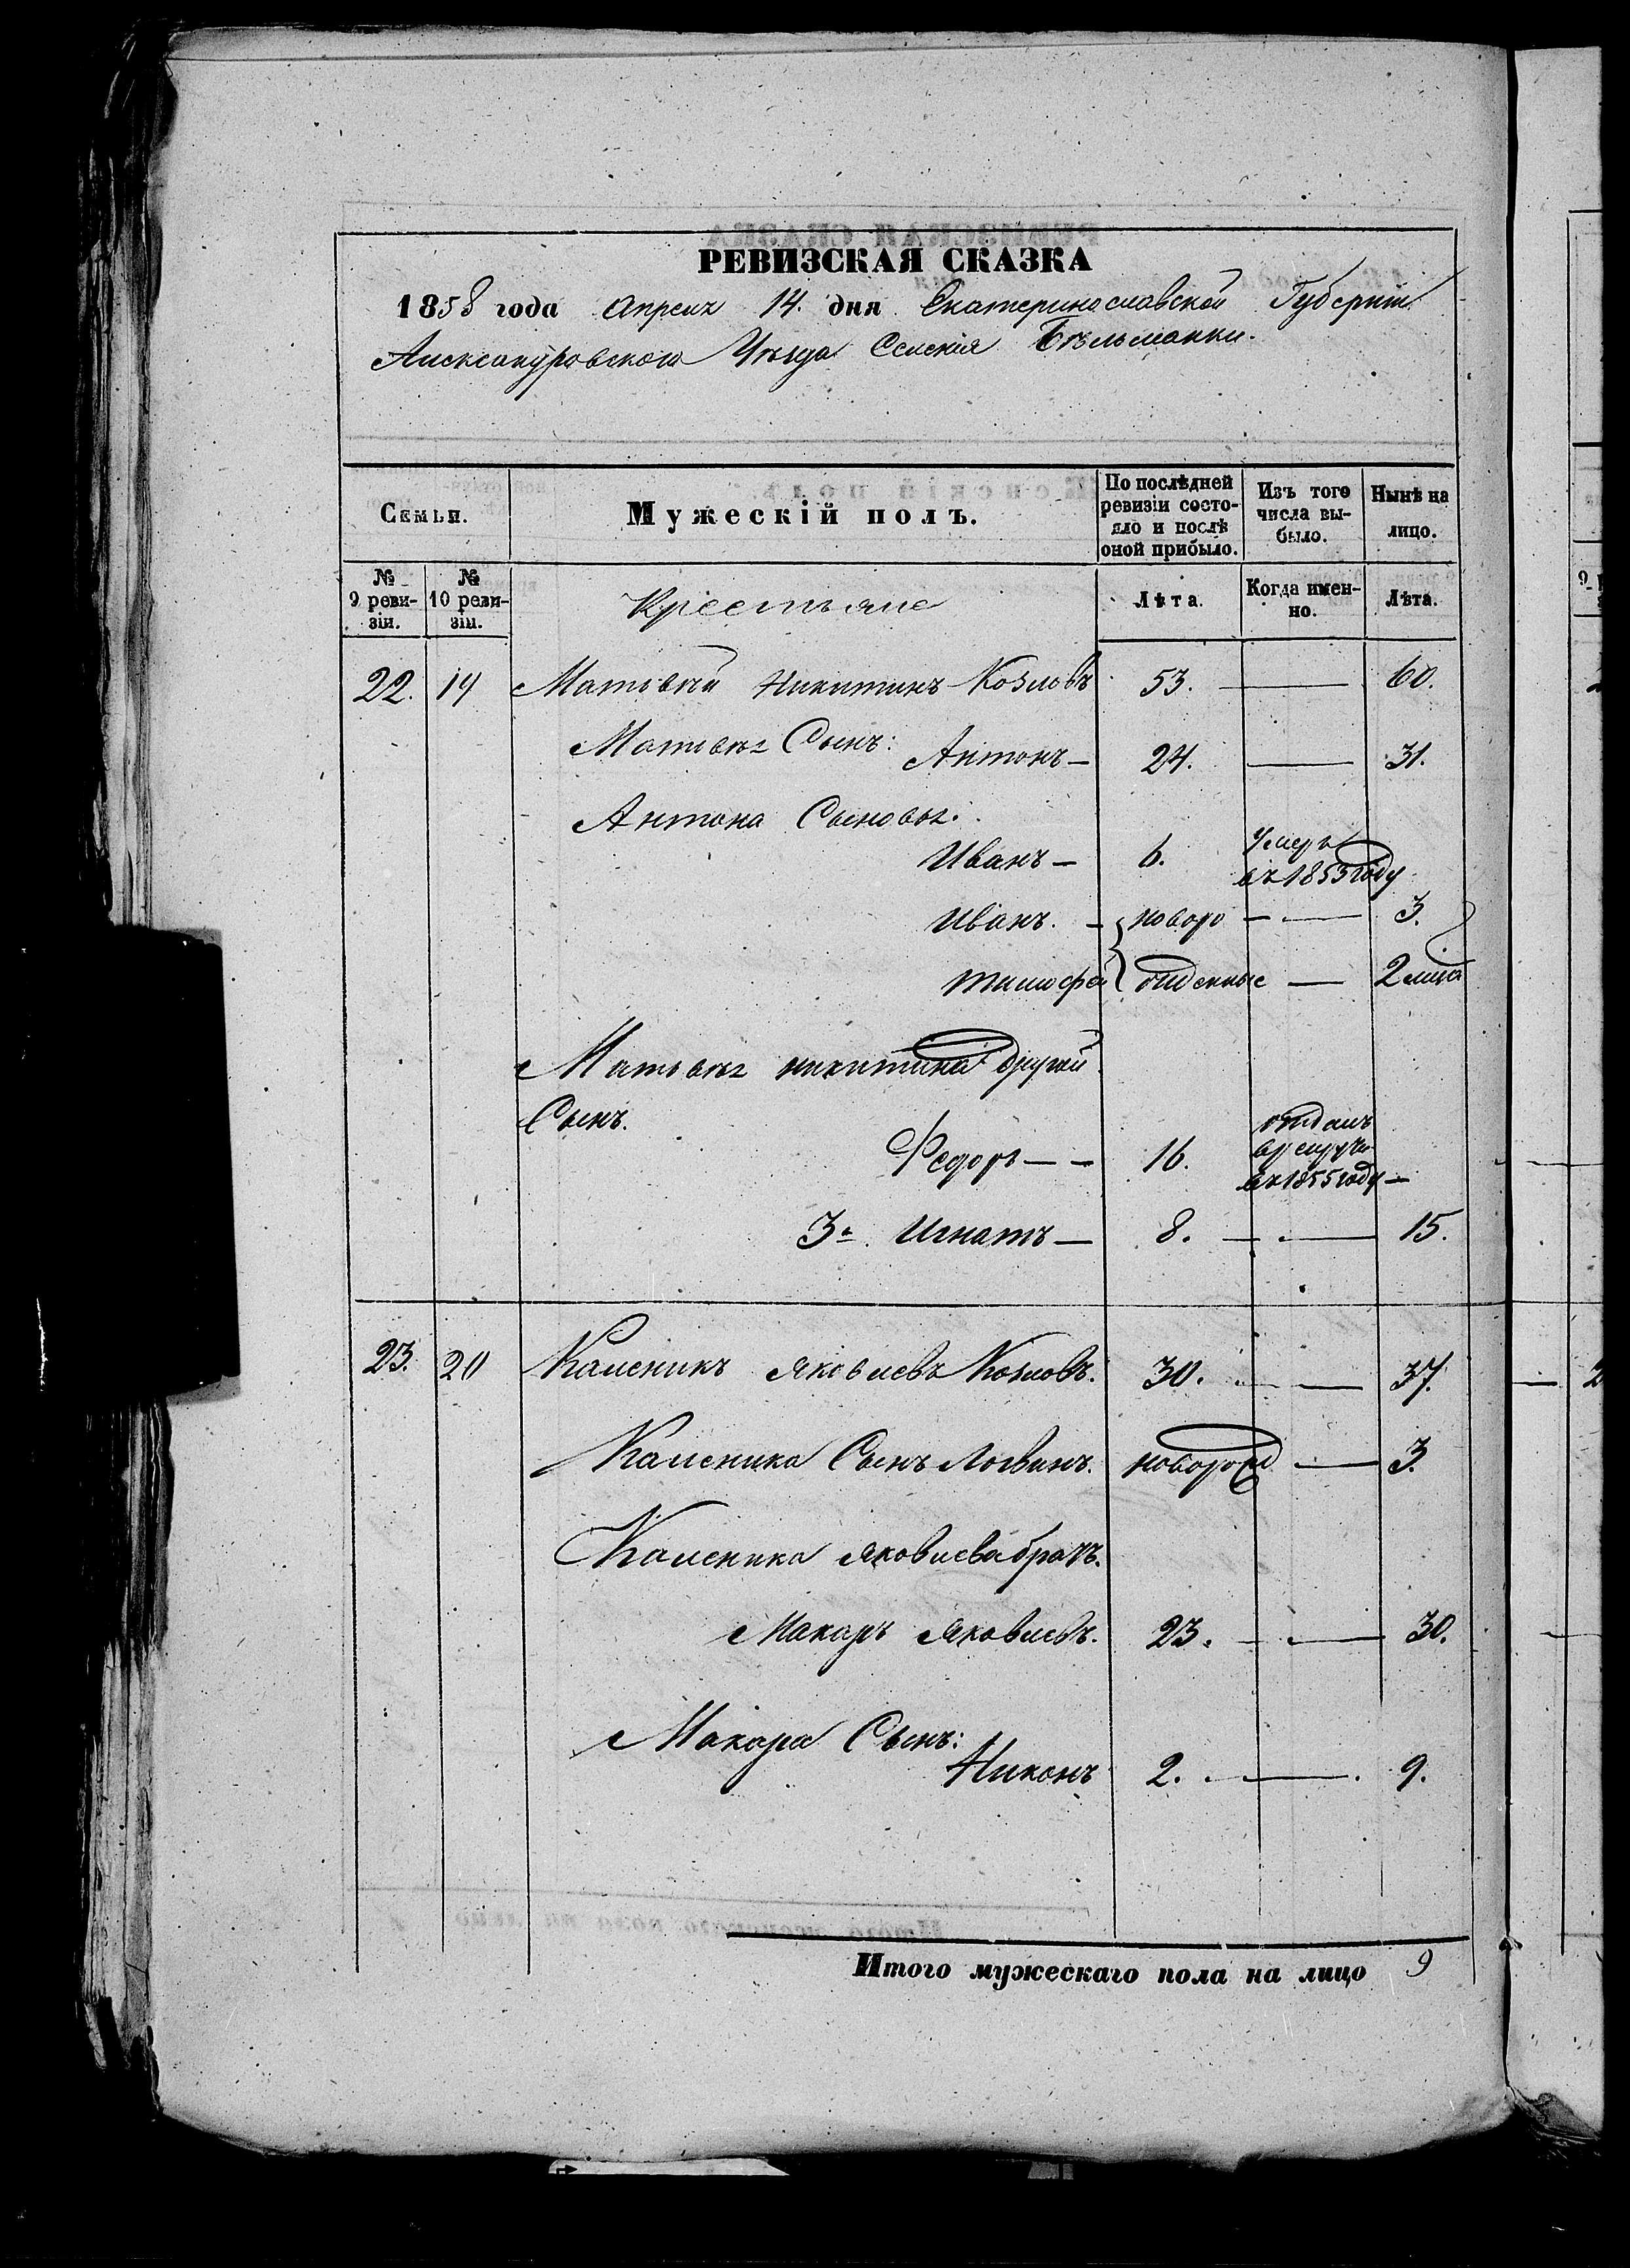 РЕВИЗСКАЯ СКАЗКА
1858 года Апреля 14. дня Екатеринославской Губернiи
Александровского Уѣзда Селенiя Бѣльманки.
Семьи. Мужескiй полъ. По послѣдней ревизiи состояло и послѣ оной прибыло. Изъ того числа выбыло. Нынѣ на лицо.
№ 9 ревизiи. № 10 ревизiи. Крестьяне Лѣта. Когда именно. Лѣта.
22. 19 Матвѣй Никитинъ Козловъ 53. — 60.
Матвѣя Сынъ: Антонъ — 24. — 31.
Антона Сыновья:
Иванъ — 6. Умеръ въ 1853 году
Иванъ. — новоро — 3.
Тимофей { жденные — 2 лѣта
Матвѣя Никитина другой
Сынъ.
Федоръ — — 16. отданъ
въ рекруты
въ 1855 году —
3й. Игнатъ — 8. — 15.
23. 20 Каленикъ Яковлевъ Козловъ. 30. — 37.
Каленика Сынъ Логвинъ. новорожд — 3.
Каленика Яковлева братъ.
Макаръ Яковлевъ. 23. — 30.
Макара Сынъ:
Никонъ 2. — 9.
Итого мужескаго пола на лицо 9